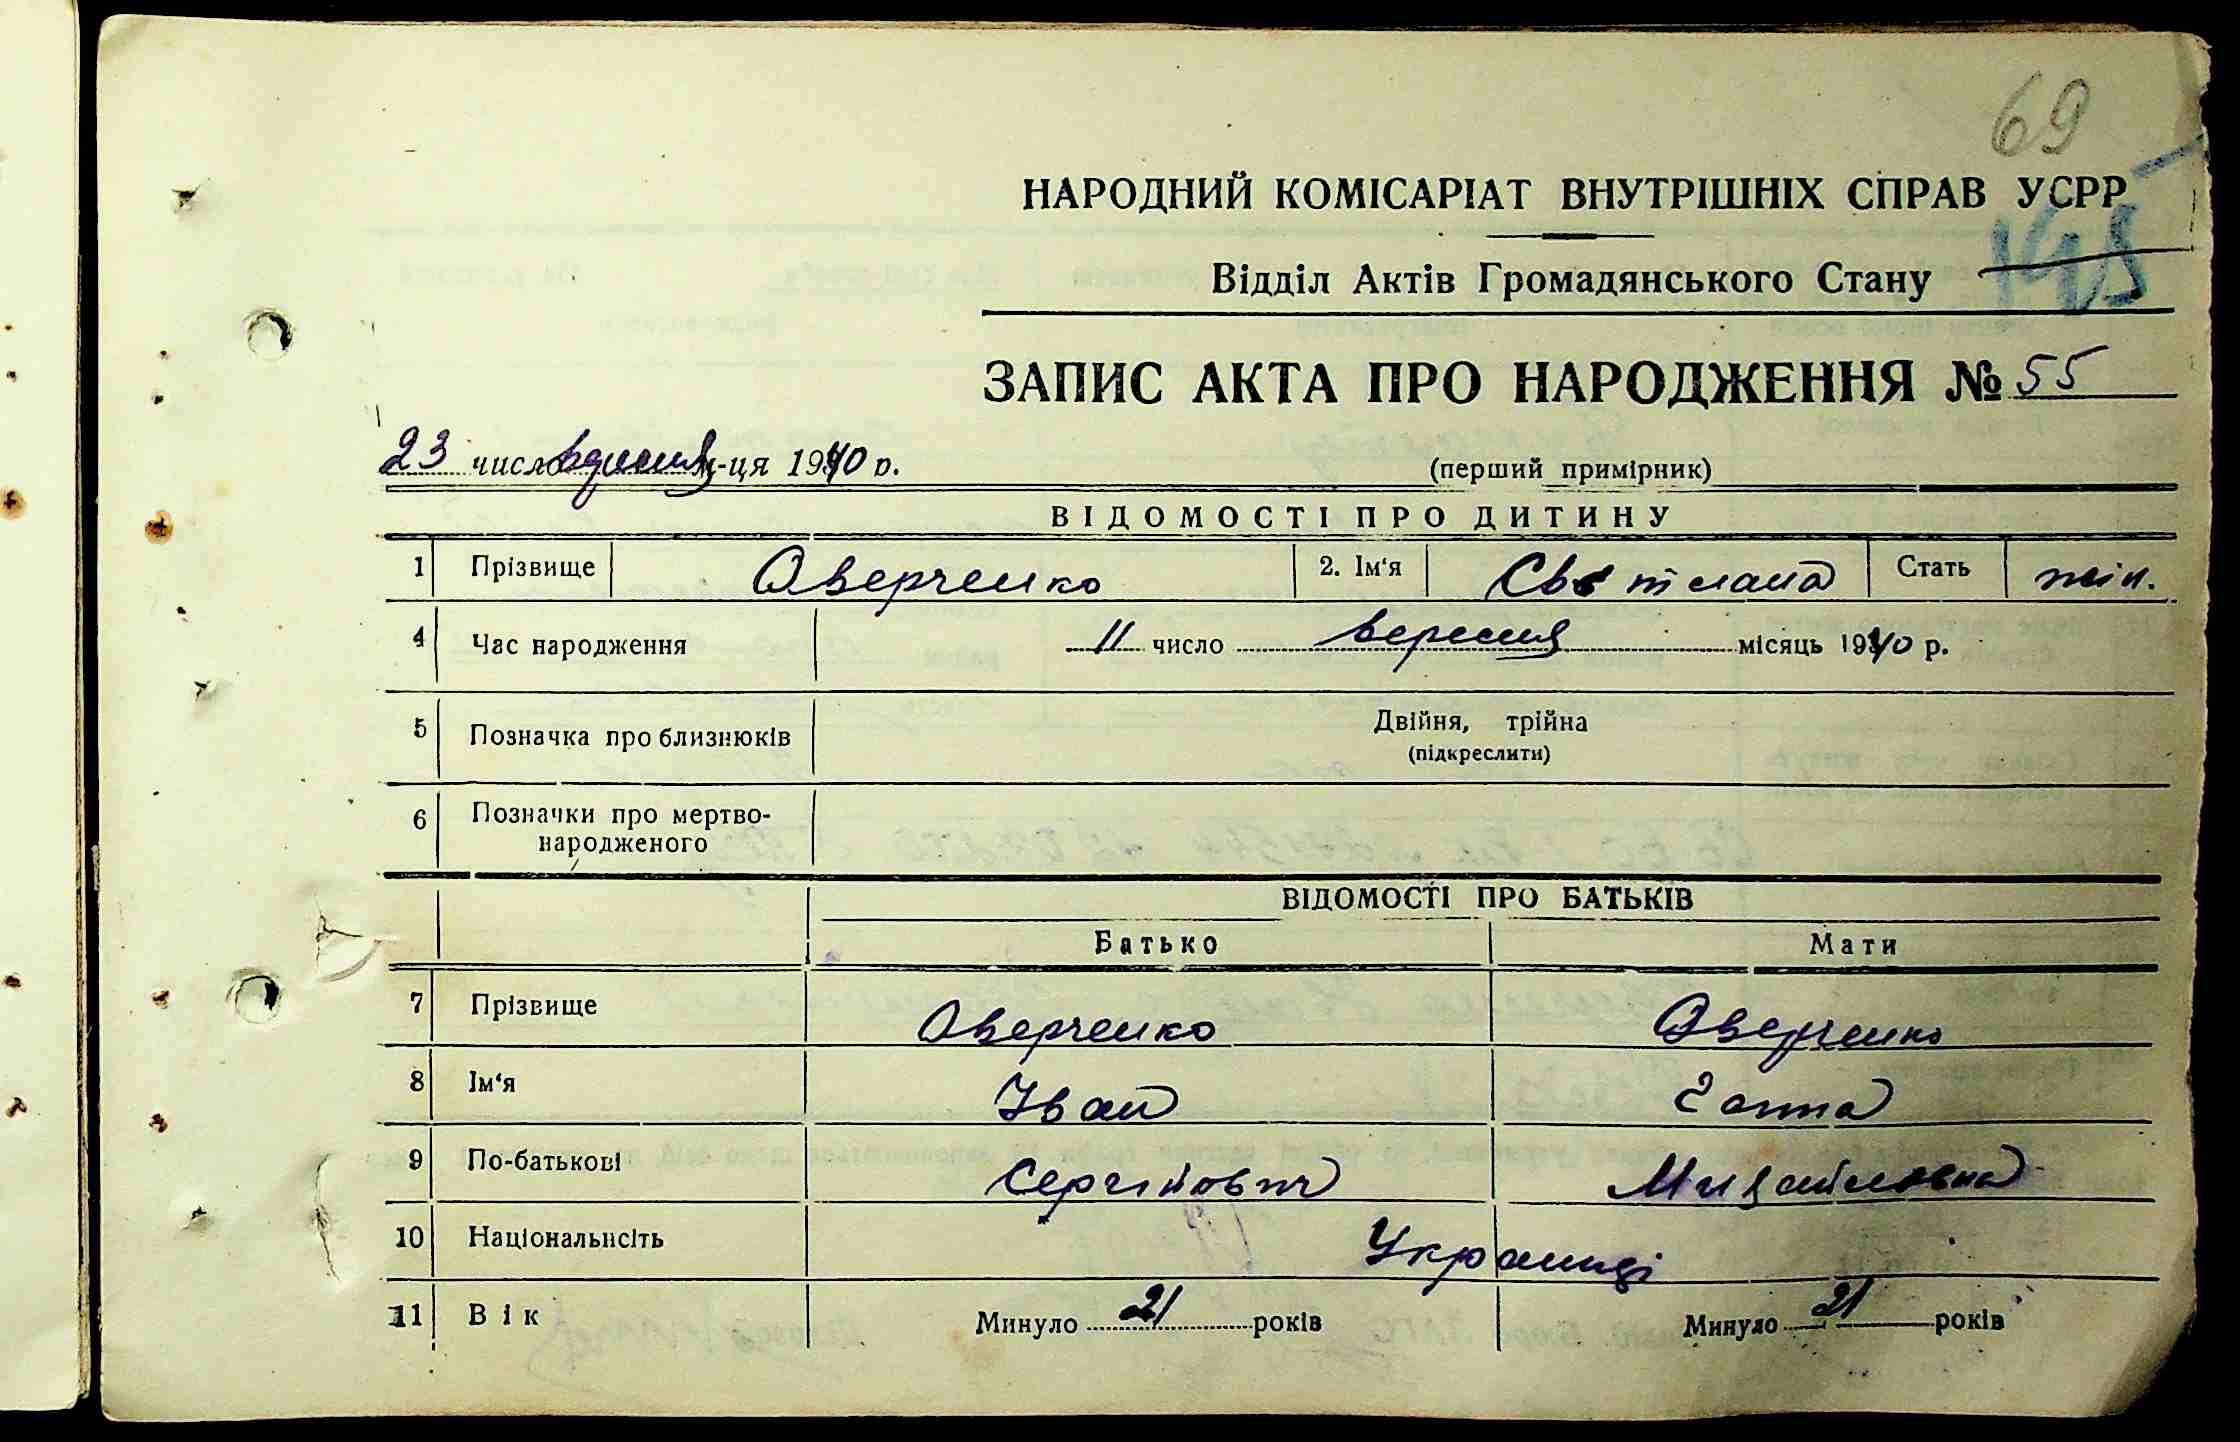 69
НАРОДНИЙ КОМІСАРІАТ ВНУТРІШНІХ СПРАВ УСРР
Відділ Актів Громадянського Стану
ЗАПИС АКТА ПРО НАРОДЖЕННЯ № 55
23 число вересня м-ця 1940 р.
(перший примірник)
ВІДОМОСТІ ПРО ДИТИНУ
1 Прізвище Аверченко 2. Ім'я Світлана Стать жін.
4 Час народження 11 число вересня місяць 1940 р.
5 Позначка про близнюків Двійня, трійна
(підкреслити)
6 Позначки про мертво-
народженого
ВІДОМОСТІ ПРО БАТЬКІВ
Батько Мати
7 Прізвище Аверченко Аверченко
8 Ім'я Іван Ганна
9 По-батькові Сергійович Михайловна
10 Національність Українці
11 Вік Минуло 21 років Минуло 21 років